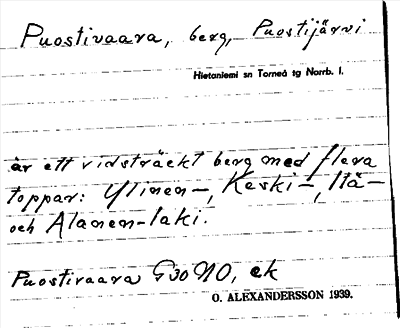 Puostivaara, berg, Puostijärvi
Hietaniemi sn Torneå tg Norrb. l.
är ett vidsträckt berg med flera
toppar: Ylinen-, Keski-, Itä-
och Alanen-laki.
Puostivaara G30 NO, ek
O. ALEXANDERSSON 1939.